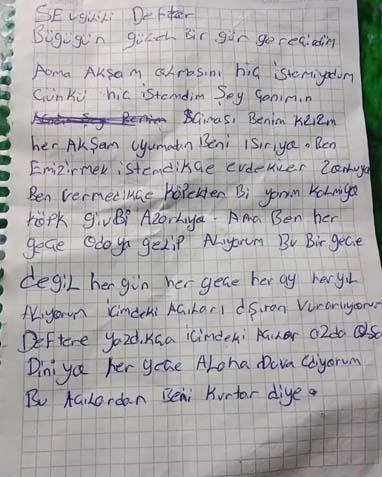 SEvgilili Defter
Bügügün güzel Bir gün goreciğim
Aoma AKşam olmasını hiç istemiyodum
Çünkü hiç istemdim Şey Canımın
Acıması Benim Kızım
her AKŞam uyumadan Beni ısırıya. Ben
Emizirmek istemdikçe evdekiler Zorluya
Ben vermedikçe Köpekten Bi yanım Kalmıya
köpk givBi Azarlıya. Ama Ben her
gece Odaya gelip Alıyorum Bu Bir gece
degil her gün her gece her ay her yıl
Alıyorum içimdeki Acıları dşıran Vuranıyorum
Deftere yazdıkça içimdeki Acılar azda Olsa
Diniya her gece Aloha Duva Ediyorum
Bu Acılardan Beni Kurtar diye.